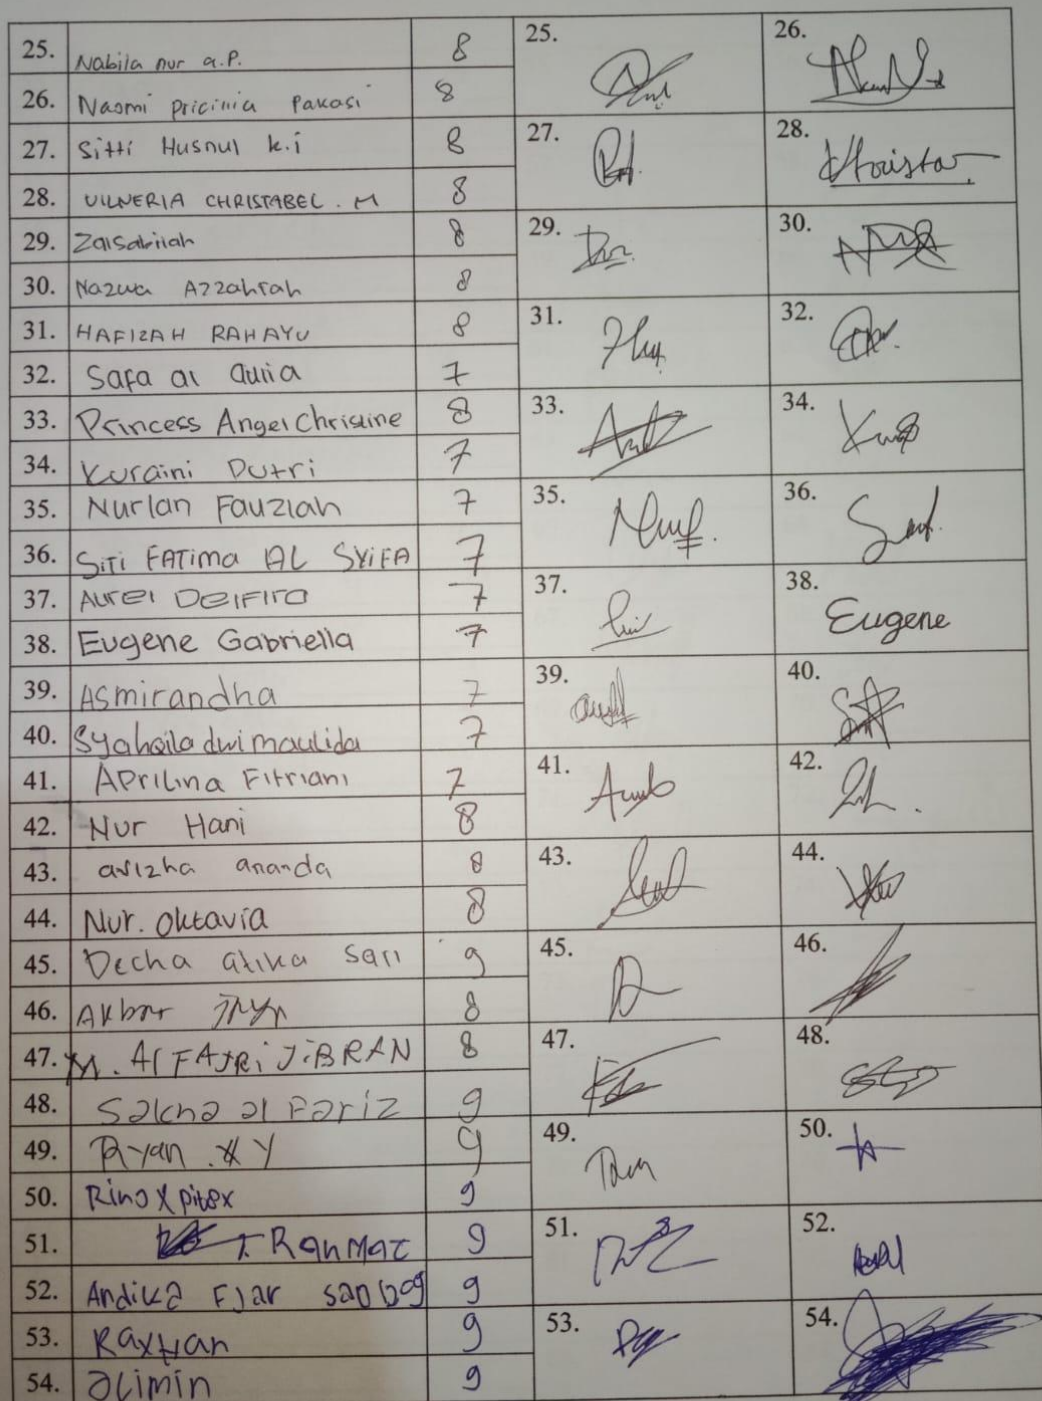 25. Nabila nur a.P. 8 25. 26.
26. Naomi pricinia Pakasi 8
27. Sitti Husnul k.i 8 27. 28.
28. VILNERIA CHRISTABEL . M 8
29. Zalsabilah 8 29. 30.
30. Nazwa Azzahrah 8
31. HAFIZAH RAHAYU 8 31. 32.
32. Safa al aulia 7
33. Princess Angel Christine 8 33. 34.
34. Kuraini Putri 7
35. Nurlan Fauziah 7 35. 36.
36. SiTi FATima AL SYiFA 7
37. AUrel Delfira 7 37. 38. Eugene
38. Eugene Gabriella 7
39. Asmirandha 7 39. 40.
40. Syahaila dwi maulida 7
41. APrilina Fitriani 7 41. 42.
42. Nur Hani 8
43. arizha ananda 8 43. 44.
44. Nur. Oktavia 8
45. Decha atika sari 9 45. 46.
46. Akbar 8
47. M. Al FAJRi JiBRAN 8 47. 48.
48. Sakha al Fariz 9
49. Ryan . X Y 9 49. 50.
50. Rino X pitex 9
51. RahMat 9 51. 52.
52. Andika Fjar 9
53. RaxHan 9 53. 54.
54. alimin 9